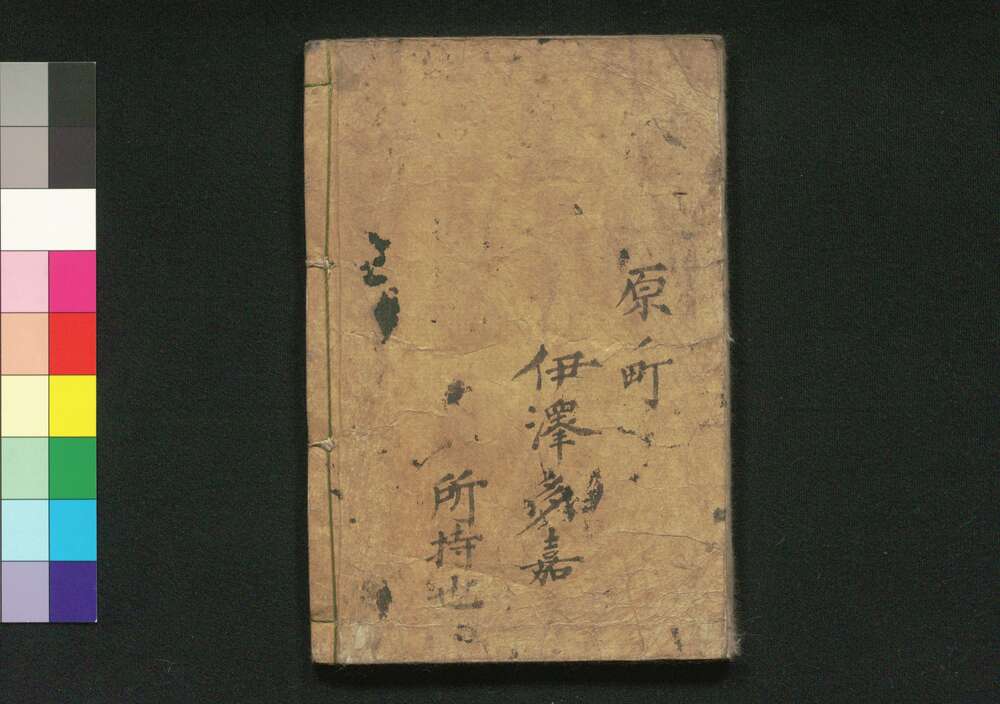 原町
伊澤 嘉
所持也